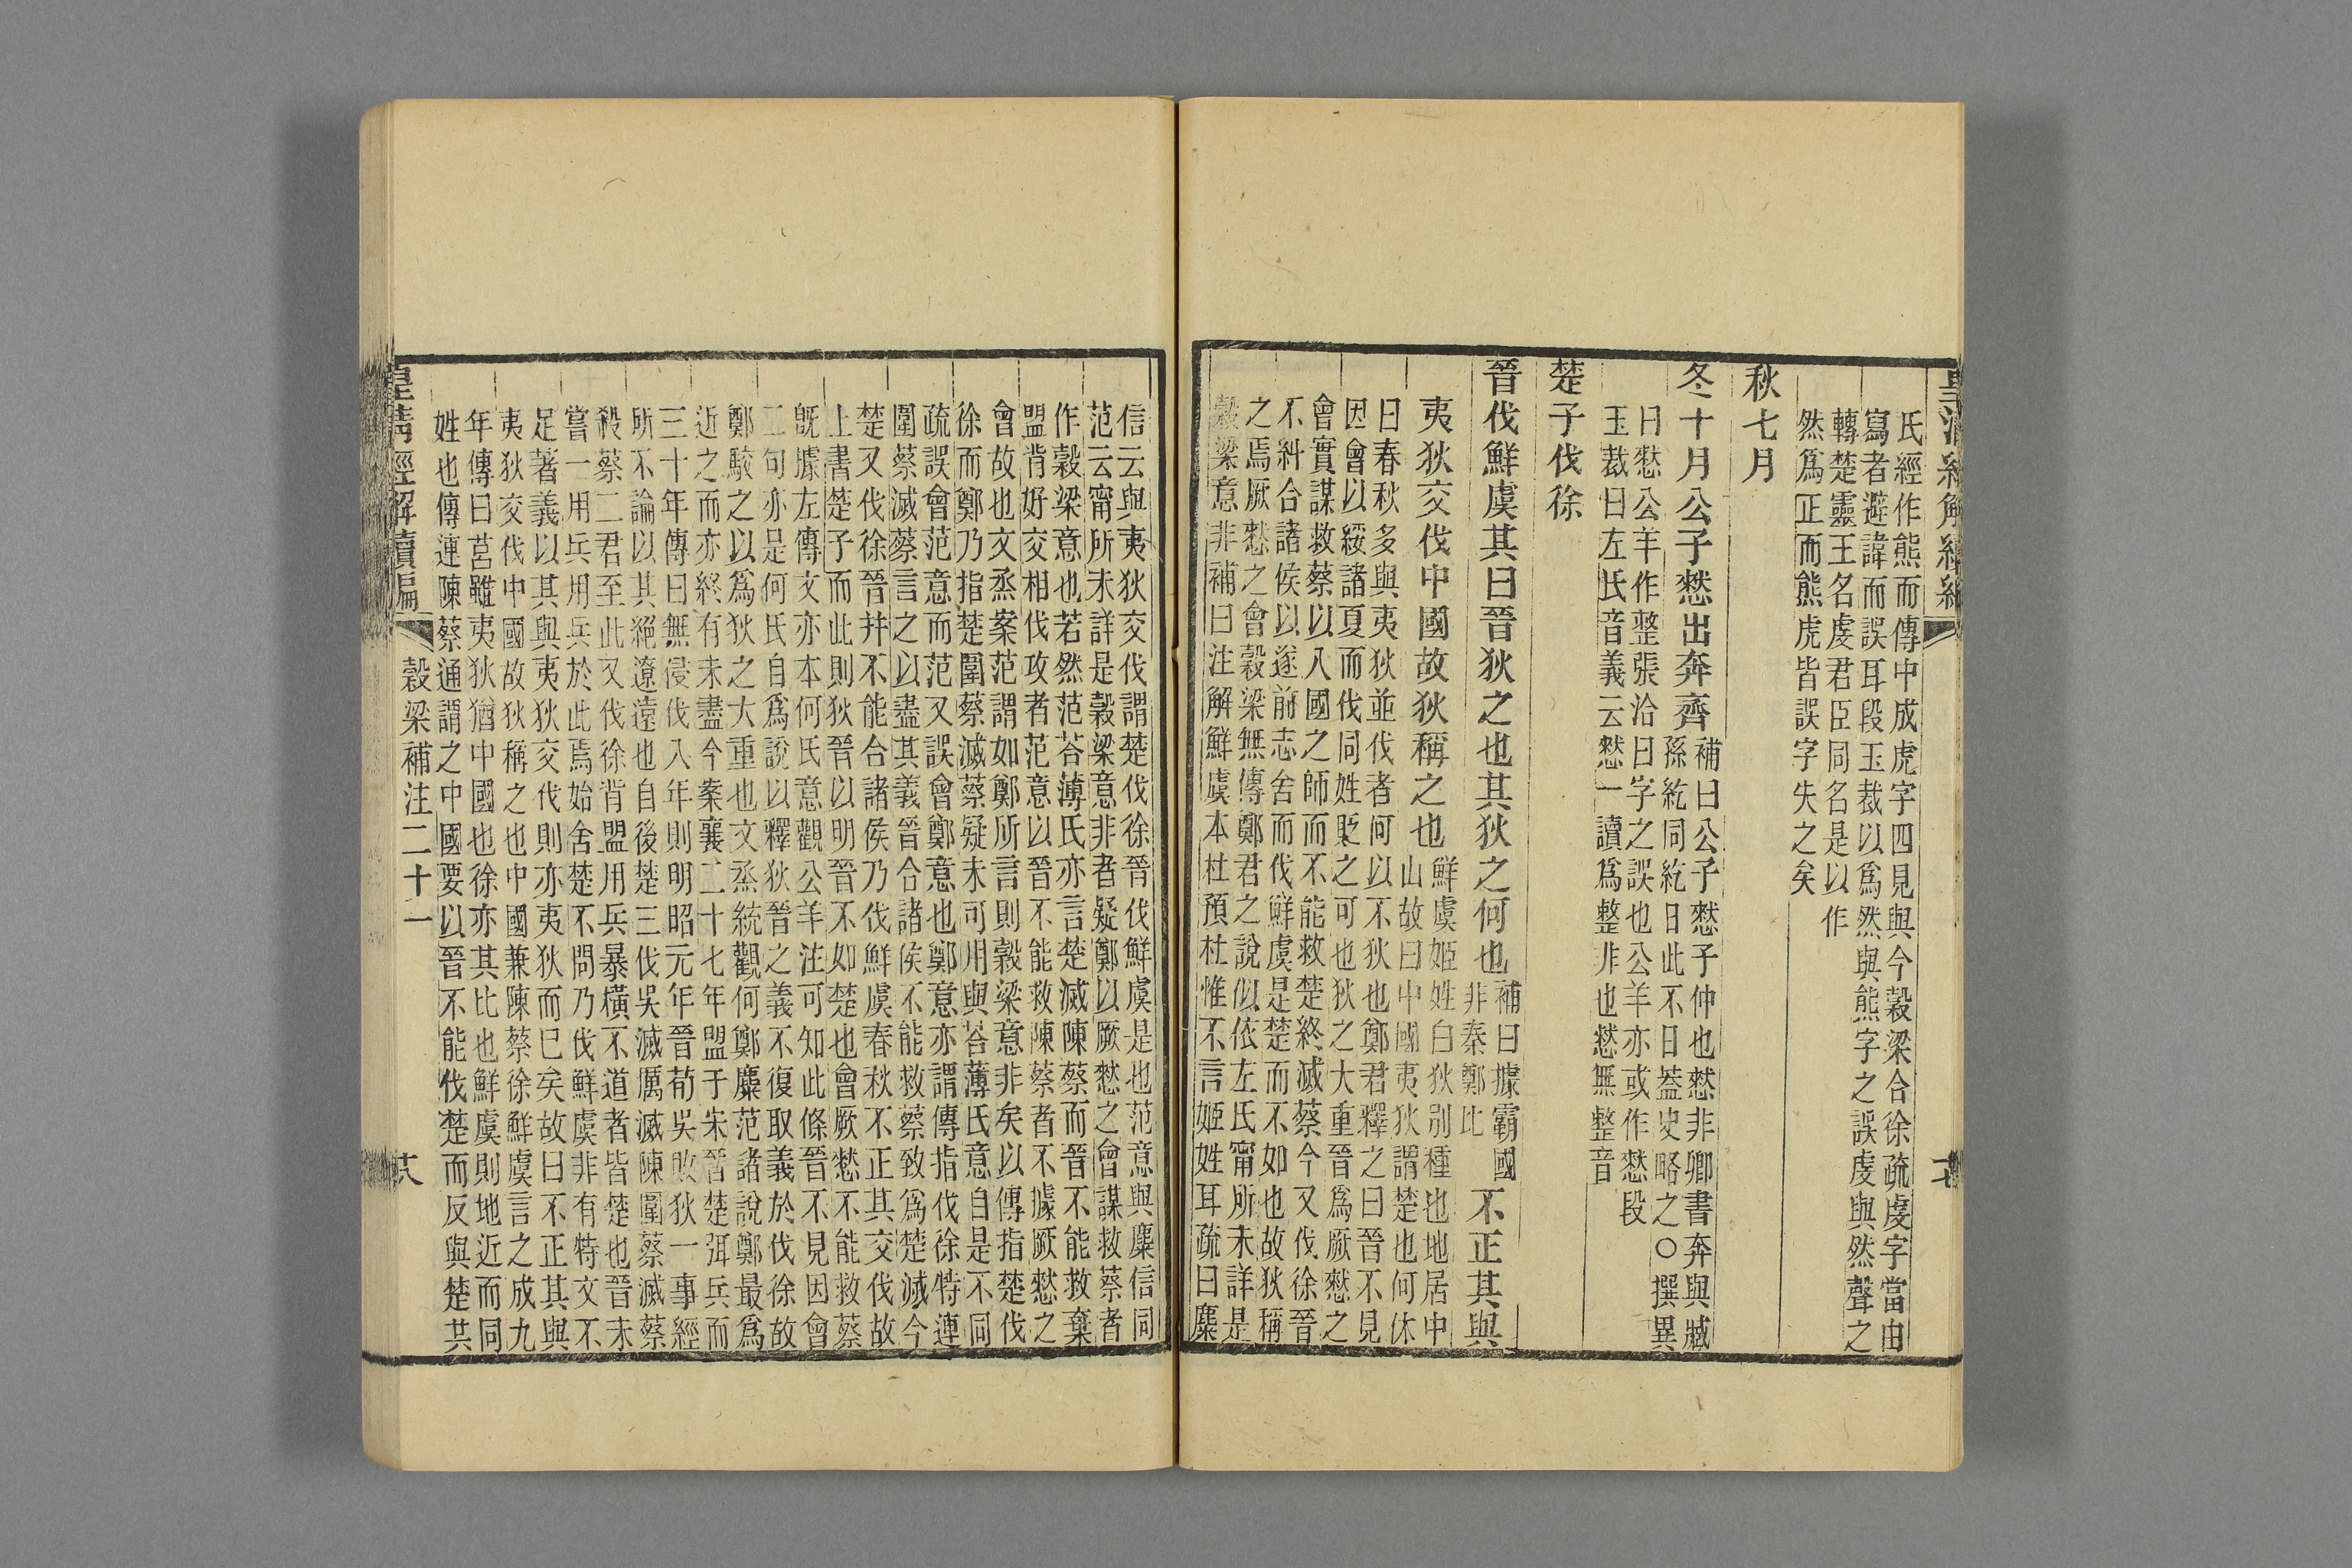 氏經作熊而傳中成虎字四見與今穀梁合徐疏虔字當由
寫者避諱而誤耳段玉裁以爲然與熊字之誤虔與然聲之
轉楚靈王名虔君臣同名是以作
然爲正而熊虎皆誤字失之矣
秋七月
冬十月公子憖出奔齊
補曰公子憖子仲也憖非卿書奔與臧
孫紇同紇日此不日葢史略之○撰異
曰憖公羊作整張洽曰字之誤也公羊亦或作憖段
玉裁曰左氏音義云憖一讀爲整非也憖無整音
楚子伐徐
晉伐鮮虞其曰晉狄之也其狄之何也
補曰據霸國
非秦鄭比
不正其與
夷狄交伐中國故狄稱之也
鮮虞姬姓白狄別種也地居中
山故曰中國夷狄謂楚也何休
曰春秋多與夷狄並伐者何以不狄也鄭君釋之曰晉不見
因會以綏諸夏而伐同姓貶之可也狄之大重晉爲厥憖之
會實謀救蔡以八國之師而不能救楚終滅蔡今又伐徐晉
不糾合諸侯以遂前志舍而伐鮮虞是楚而不如也故狄稱
之焉厥憖之會穀梁無傳鄭君之說似依左氏甯所未詳是
穀梁意非補曰注解鮮虞本杜預杜惟不言姬姓耳疏曰麋
信云與夷狄交伐謂楚伐徐晉伐鮮虞是也范意與麋信同
范云甯所未詳是穀梁意非者疑鄭以厥憖之會謀救蔡者
作穀梁意也若然范荅薄氏亦言楚滅陳蔡而晉不能救棄
盟背好交相伐攻者范意以晉不能救陳蔡者不據厥憖之
會故也文烝案范謂如鄭所言則穀梁意非矣以傳指楚伐
徐而鄭乃指楚圍蔡滅蔡疑未可用與荅薄氏意自是不同
疏誤會范意而范又誤會鄭意也鄭意亦謂傳指伐徐特連
圍蔡滅蔡言之以盡其義晉合諸侯不能救蔡致爲楚滅今
楚又伐徐晉并不能合諸侯乃伐鮮虞春秋不正其交伐故
上書楚子而此則狄晉以明晉不如楚也會厥憖不能救蔡
既據左傳文亦本何氏意觀公羊注可知此條晉不見因會
二句亦是何氏自爲說以釋狄晉之義不復取義於伐徐故
鄭駮之以爲狄之大重也文烝統觀何鄭麋范諸說鄭最爲
近之而亦終有未盡今案襄二十七年盟于宋晉楚弭兵而
三十年傳曰無侵伐八年則明昭元年晉荀吳敗狄一事經
所不論以其絕遼遠也自後楚三伐吳滅厲滅陳圍蔡滅蔡
殺蔡二君至此又伐徐背盟用兵暴橫不道者皆楚也晉未
嘗一用兵用兵於此焉始舍楚不問乃伐鮮虞非有特文不
足著義以其與夷狄交伐則亦夷狄而已矣故曰不正其與
夷狄交伐中國故狄稱之也中國兼陳蔡徐鮮虞言之成九
年傳曰莒雖夷狄猶中國也徐亦其比也鮮虞則地近而同
姓也傳連陳蔡通謂之中國要以晉不能伐楚而反與楚共
皇清經解續編
穀梁補注二十一